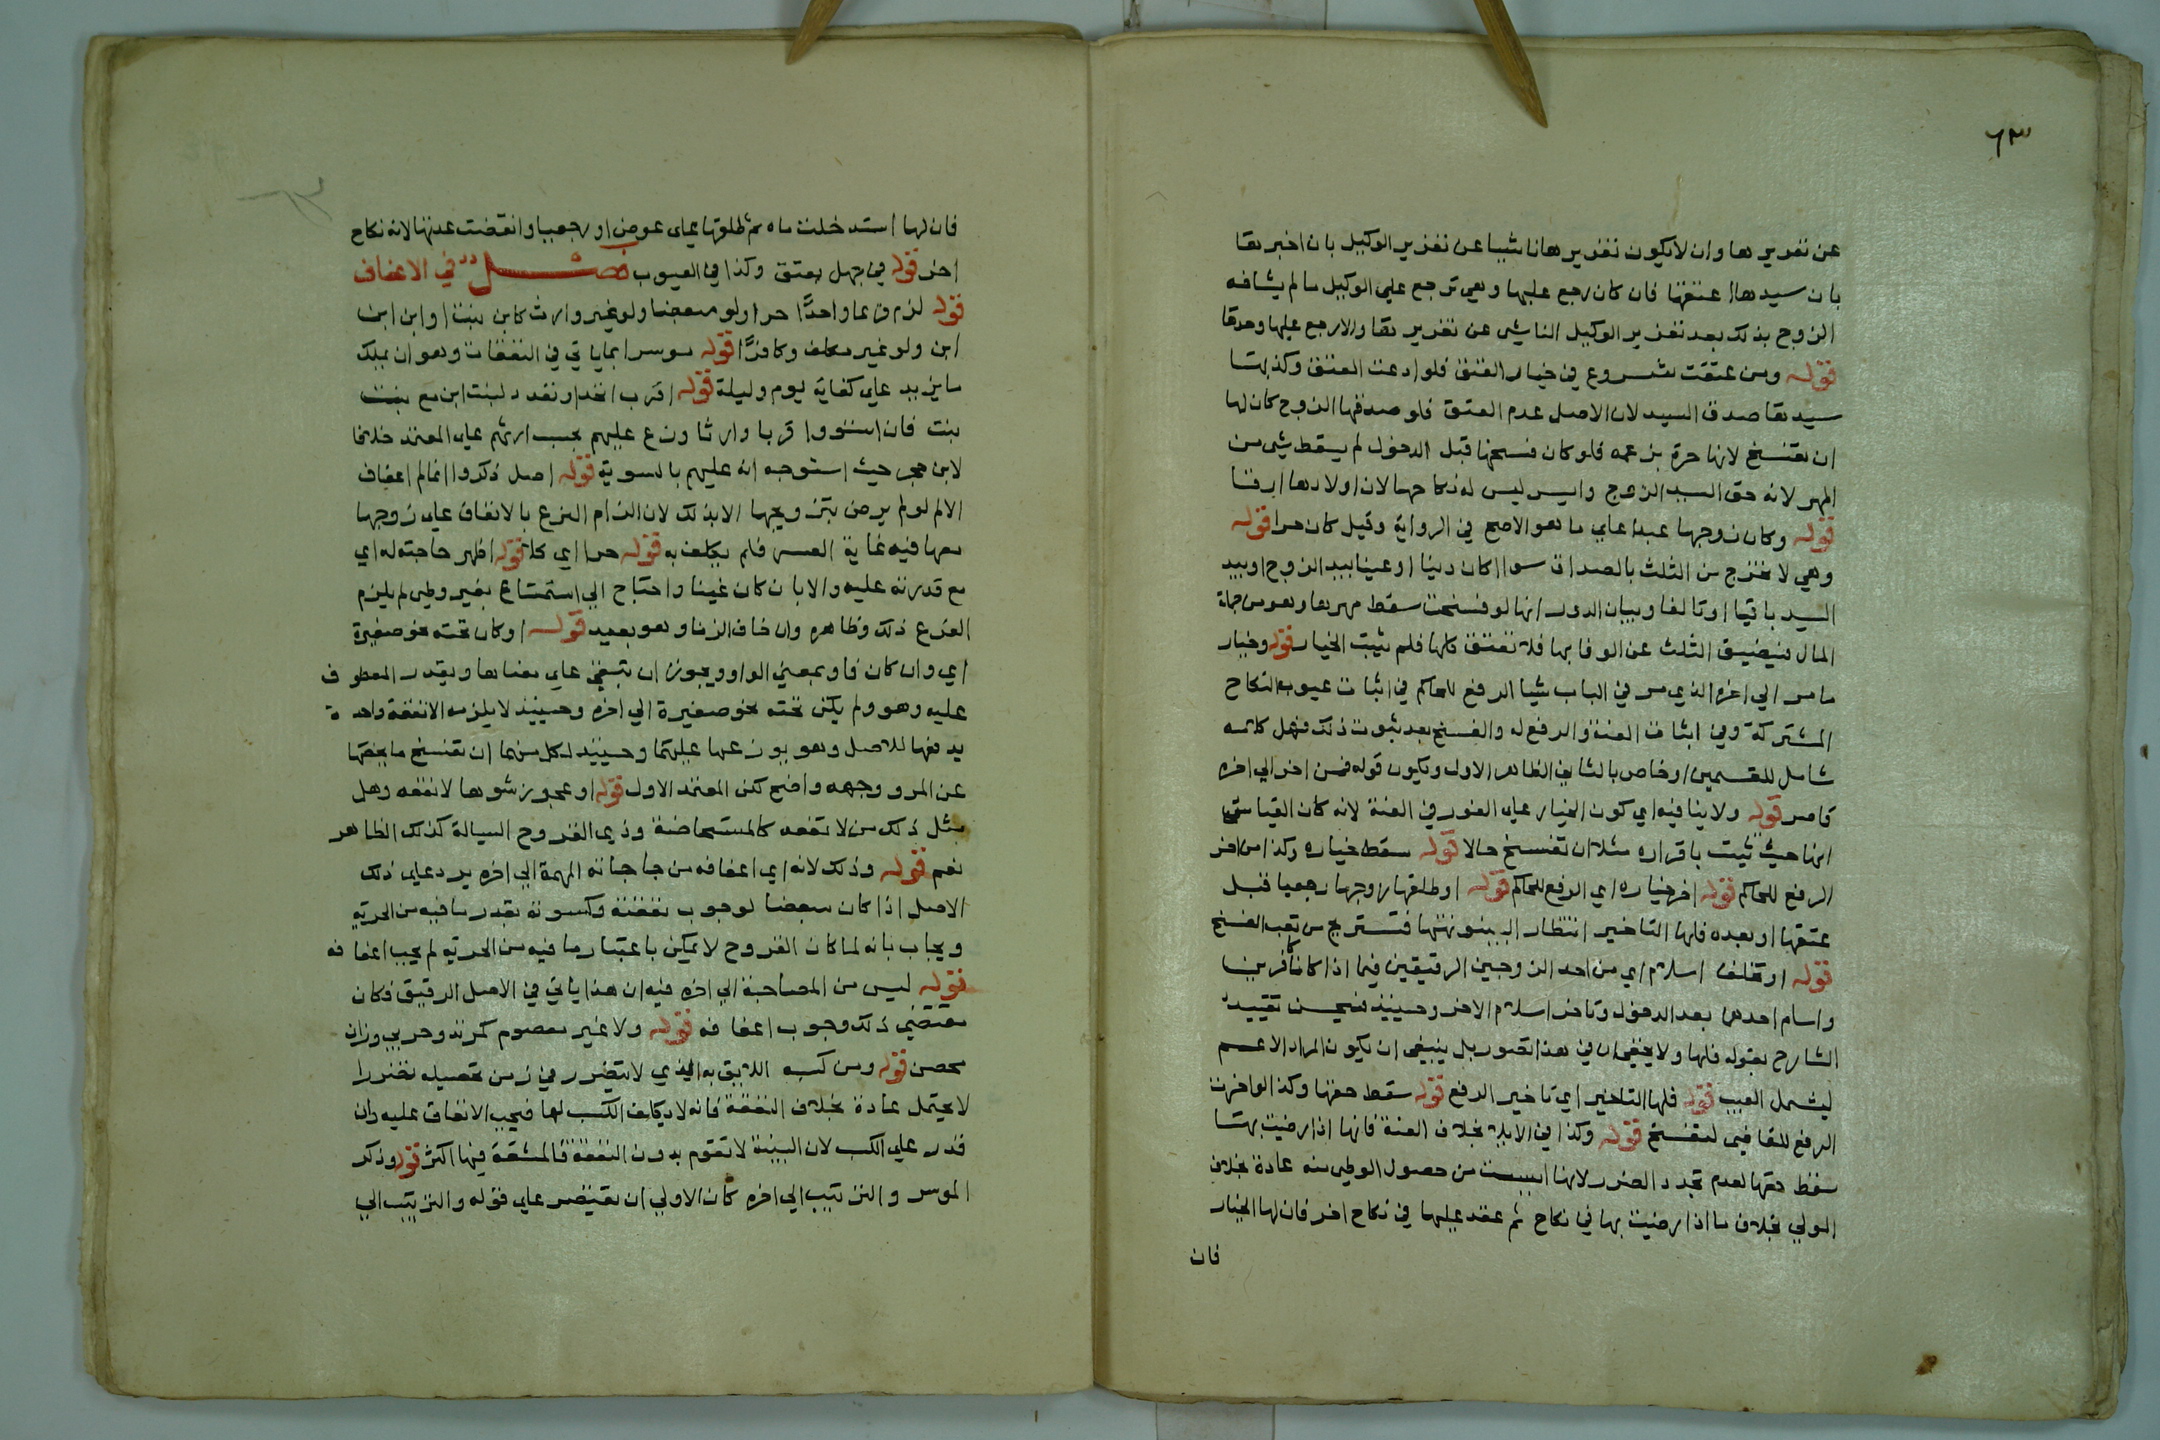 ٦٣
عن تغريرها وان لا يكون تغريرها ناشيا عن تغرير الوكيل بان اخبرها
بان سيدها اعتقها فان كان رجع عليها وهي ترجع علي الوكيل ما لم يشافه
الزوج بذلك بعد تغرير الوكيل الناشي عن تغريرها والا رجع عليها وحدها
قوله ومن عتقت شروع في خيار العتق فلو ادعت العتق وكذبها
سيدها صدق السيد لان الاصل عدم العتق فلو صدقها الزوج كان لها
ان تفسخ لانها حرة بزعمه فلو كان فسخها قبل الدخول لم يسقط شي من
المهر لانه حق السيد الزوج وليس له نكاحها لان اولادها ارقا
قوله وكان زوجها عبدا علي ما هو الاصح في الرواية وقيل كان حرا قوله
وهي لا تخرج من الثلث بالصداق سوا كان دينا او عينا بيد الزوج او بيد
السيد باقيا او تالفا وبيان الدور انها لو فسخت سقط مهرها وهو من جملة
المال فيضيق الثلث عن الوفا بها فلا تعتق كلها فلم يثبت الخيار قوله وخيار
ما مر الي اخره الذي مر في الباب شيا الرفع للحاكم في اثبات عيوب النكاح
المشتركة وفي اثبات العنة والرفع له والفسخ بعد ثبوت ذلك فهل كلامه
شامل للقسمين او خاص بالثاني الظاهر الاول ويكون قوله فمن اخر الي اخره
قاصر قوله ولا ينافيه اي كون الخيار علي الفور في العنة لانه كان القياس
انها حيث ثبت باقراره مثلا ان تفسخ حالا قوله سقط خياره وكذا من اخر
الرفع للحاكم قوله اخر خياره اي الرفع للحاكم قوله او طلقها زوجها رجعيا قبل
عتقها او بعده فلها التاخير انتظار البينونتها فتستريح من تعب الفسخ
قوله او تخلف اسلام اي من احد الزوجين الرقيقين فيما اذا كانا كافرين
واسلم احدهما بعد الدخول وتاخر اسلام الاخر وحينئذ فيحسن تقييد
الشارح بقوله فلها ولا يخفي ان في هذا تصور بل ينبغي ان يكون المراد الاعم
ليشمل العيب قوله فلها التاخير اي تاخير الرفع قوله سقط حقها وكذا لو اخرت
الرفع للقاضي لتفسخ قوله وكذا في الايلا بخلاف العنة فانها اذا رضيت بها
سقط حقها لعدم تجدد الضرر لانها ايست من حصول الوطي منه عادة بخلاف
المولي بخلاف ما اذا رضيت بها في نكاح ثم عقد عليها في نكاح اخر فان لها الخيار
فان
فان لها استدخلت ماه ثم طلقها علي عوض او رجعيا وانقضت عدتها لانه نكاح
اخر قوله في جهل بعتق وكذا في العيوب فصل في الاعفاف
قوله لزم فرعا واحدا حرا ولو مبعضا ولو غير وارث كابن بنت او ابن ابن
ابن ولو غير مكلف وكافرا قوله موسرا بما ياتي في النفقات وهو ان يملك
ما يزيد علي كفاية يوم وليلة قوله اقرب اتحد او تعدد لبنت ابن مع بنت
بنت فان استووا قربا وارثا وزع عليهم بحسب ارثهم علي المعتمد خلافا
لابن حجر حيث استوجه انه عليهم بالسوية قوله اصل ذكر وانما لم اعفاف
الام لو لم يرض بتزويجها الا بذلك لان الزام الفرع بالانفاق علي زوجها
معها فيه غاية العسر فلم يكلف به قوله حرا اي كلا قوله اظهر حاجته له اي
مع قدرته عليه والا بان كان غنيا واحتاج الي استمتاع بغير وطي لم يلزم
الفرع ذلك وظاهره وان خاف الزنا وهو بعيد قوله او كان تحته نحو صغيرة
اي وان كان فاو بمعني الواو ويجوز ان تبقي علي معناها ويقدر المعطوف
عليه وهو ولم يكن تحته نحو صغيرة الي اخره وحينئذ لا يلزمه الا نفقة واحدة
يدفعها للاصل وهو يوزعها عليهما وحينئذ لكل منهما ان تفسخ ما يخصها
عن المر ووجهه واضح لكن المعتمد الاول قوله او عجوز شوها لا نفقه وهل
مثل ذلك من لا تعفه كالمستحاضة وذي القروح السيالة كذلك الظاهر
نعم قوله وذلك لانه اي اعفافه من حاجاته المهمة الي اخره يرد علي ذلك
الاصل اذا كان مبعضا لوجوب نفقته وكسوته بقدر ما فيه من الحرية
ويجاب بانه لما كان الفروج لا يمكن باعتبار ما فيه من الحرية لم يجب اعفافه
قوله ليس من المصاحبة الي اخره فيه ان هذا ياتي في الاصل الرقيق فكان
مقتضي ذلك وجوب اعفافه قوله ولا غير معصوم كمرتد وحربي وزان
محصن قوله ومن كسبه اللايق به الذي لا يتضرر في زمن تحصيله تضررا
لا يحتمل عادة بخلاف النفقة فانه لا يكلف الكسب لها فيجب الانفاق عليه وان
قدر علي الكسب لان البينة لا تقوم بدون النفقة فالمشقة فيها اكثر قوله وذكر
الموسر والترتيب الي اخره كان الاولي ان يقتصر علي قوله والترتيب الي